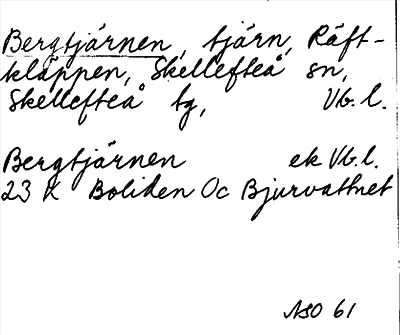 Bergtjärnen, tjärn, Räft-
kläppen, Skellefteå sn,
Skellefteå tg, Vb. l.
Bergtjärnen ek Vb. l.
23 K Boliden Oc Bjurvattnet
NSO 61